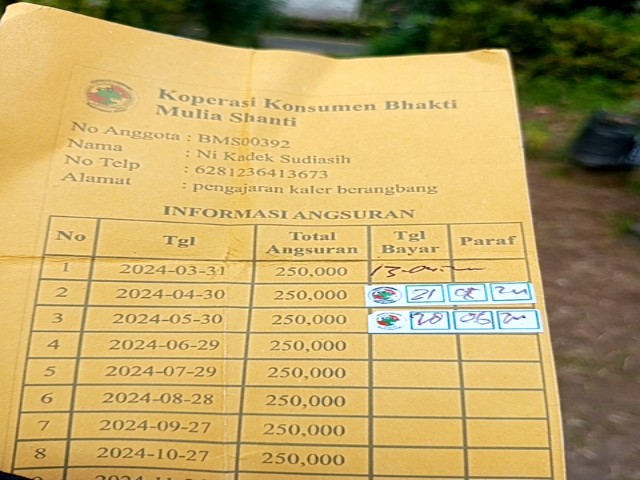 Koperasi Konsumen Bhakti
Mulia Shanti
No Anggota : BMS00392
Nama : Ni Kadek Sudiasih
No Telp : 6281236413673
Alamat : pengajaran kaler berangbang
INFORMASI ANGSURAN
No Tgl Total Angsuran Tgl Bayar Paraf
1 2024-03-31 250,000
2 2024-04-30 250,000 21
3 2024-05-30 250,000
4 2024-06-29 250,000
5 2024-07-29 250,000
6 2024-08-28 250,000
7 2024-09-27 250,000
8 2024-10-27 250,000